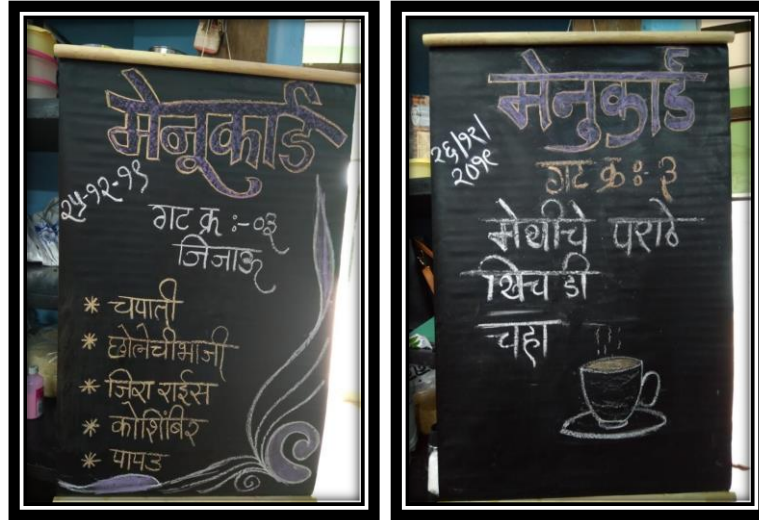 मेनूकार्ड
२५-१२-१९
गट क्र :-०३
जिजाऊ
* चपाती
* छोलेचीभाजी
* जिरा राईस
* कोशिंबिर
* पापड
मेनुकार्ड
२६/१२/
२०१९
गट क्र :- ३
मेथीचे पराठे
खिचडी
चहा